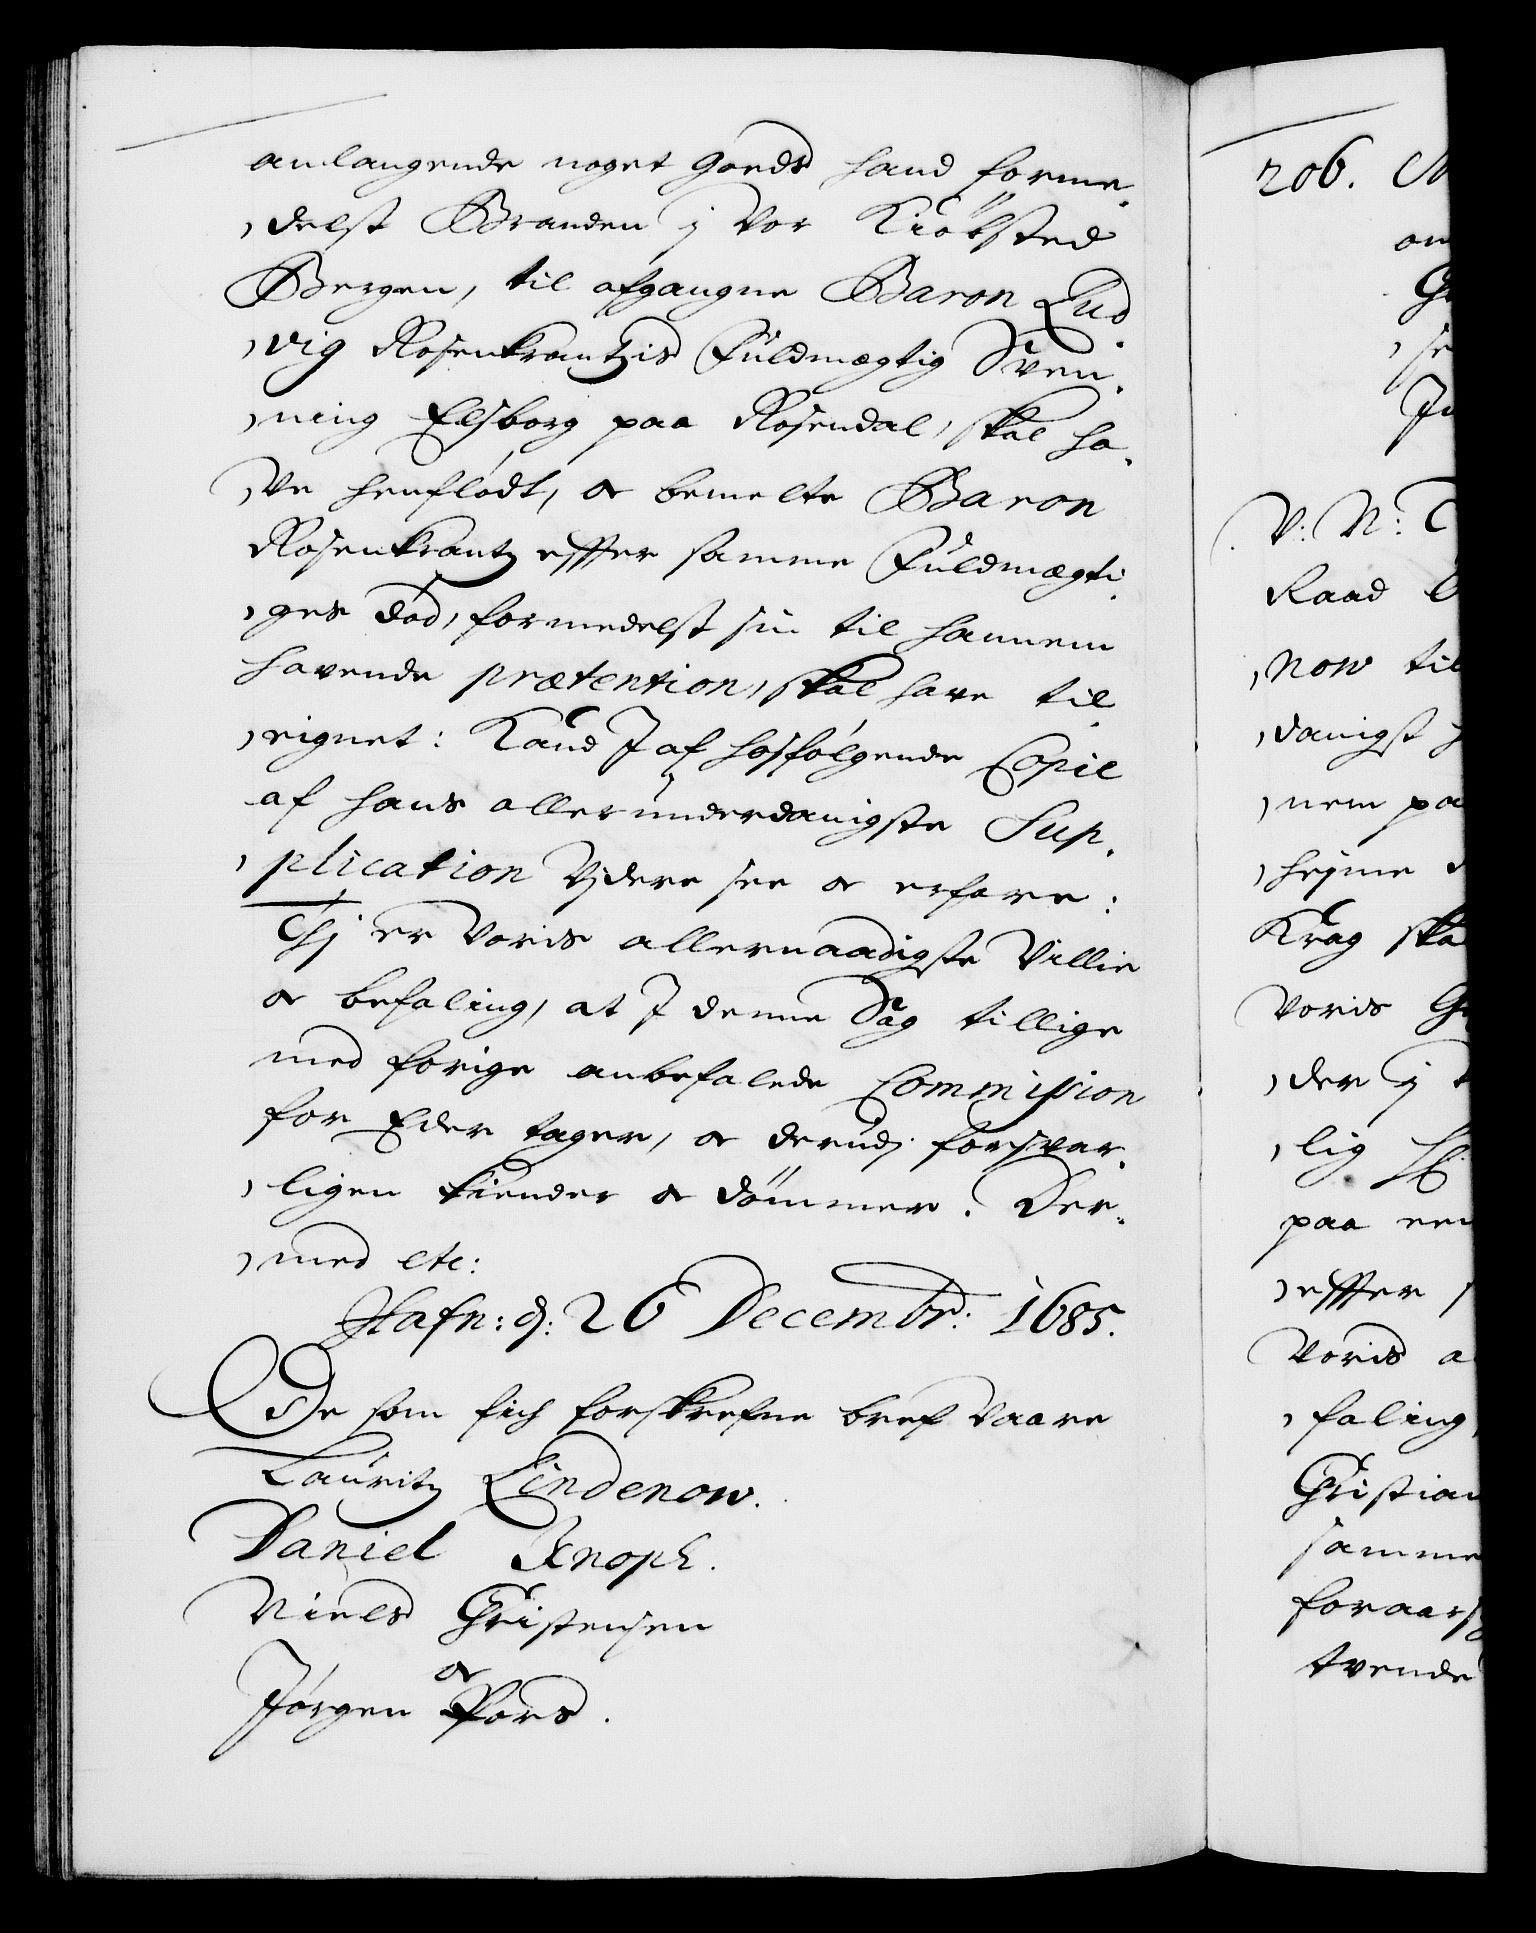 anlangende noget Goeds hand forme,
,delst Branden j Vor Kiöbsted
Bergen, til afgangne Baron Lud,
,vig Rosenkrantzis Fuldmægtig Sven,
,ning Elsborg paa Rosendal, skal ha,
,ve henflödt, oc bemelte Baron
Rosenkrantz effter samme Fuldmægti,
,ges död, formedelst sin til hannem
havende prætention, skal have til,
,eignet: Kand J af hosfölgende Copie
af hans allerunderdanigste Sup,
,plication Vjdere see oc erfare:
Thj er Voris allernaadigste Villie
oc befaling, at J denne Sag tillige
med forige anbefalede Commission
for Eder tager, oc derudj forsvar,
,ligen kiender oc dömmer. Der,
,med etc:
Hafn: d: 26 Decembr: 1685.
De som fich forskrefne bref vaare
Lauritz Lindenow.
Daniel Knoph.
Niels Christensen
oc
Jörgen Pors.
206.
V: N:
Raad
,now til
,danigst
,nem pa
,hejme
Krag ska
Voris
,der j
,lig
paa
,effter
Voris
,faling
Christian
samme
foraars
tvende